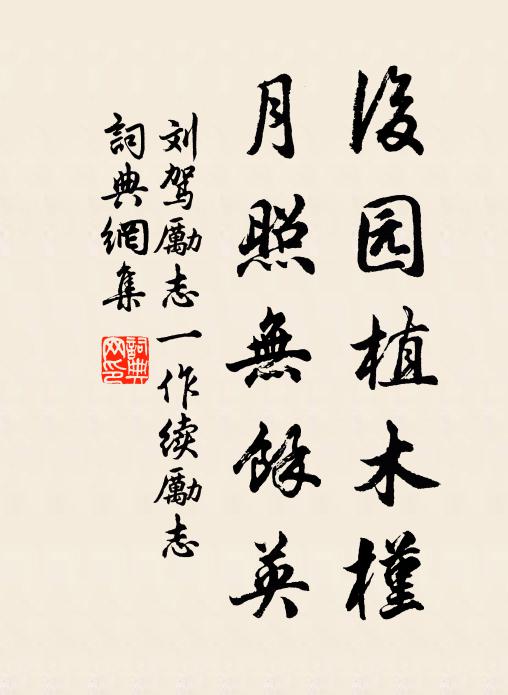 後园植木槿
月照無餘英
刘驾勵志一作续勵志
詞典網集
詞典網印